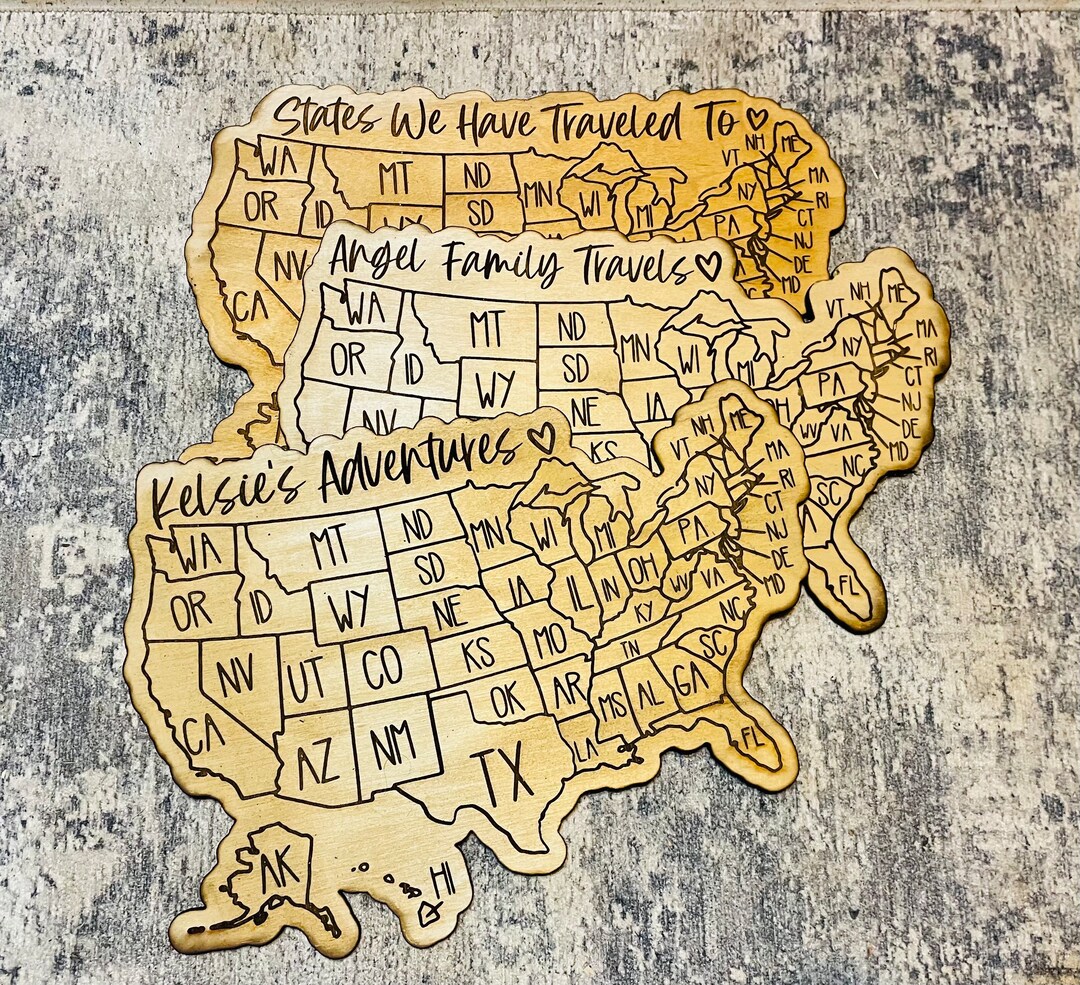 States We Have Traveled To
WA MT ND MN WI MI VT NH ME
OR ID SD NY MA
PA RI
CT
NV NJ
DE
CA MD
Angel Family Travels
WA MT ND MN WI MI VT NH ME
OR ID WY SD NY MA
RI
NV NE IA PA CT
NJ
KS WV VA DE
NC MD
SC
FL
Kelsie's Adventures
WA MT ND MN WI MI VT NH ME
OR ID WY SD NY MA
RI
NE IA IL IN OH PA CT
NJ
NV UT CO KS MO KY WV VA DE
MD
CA AZ NM OK AR TN NC
SC
TX LA MS AL GA
FL
AK HI